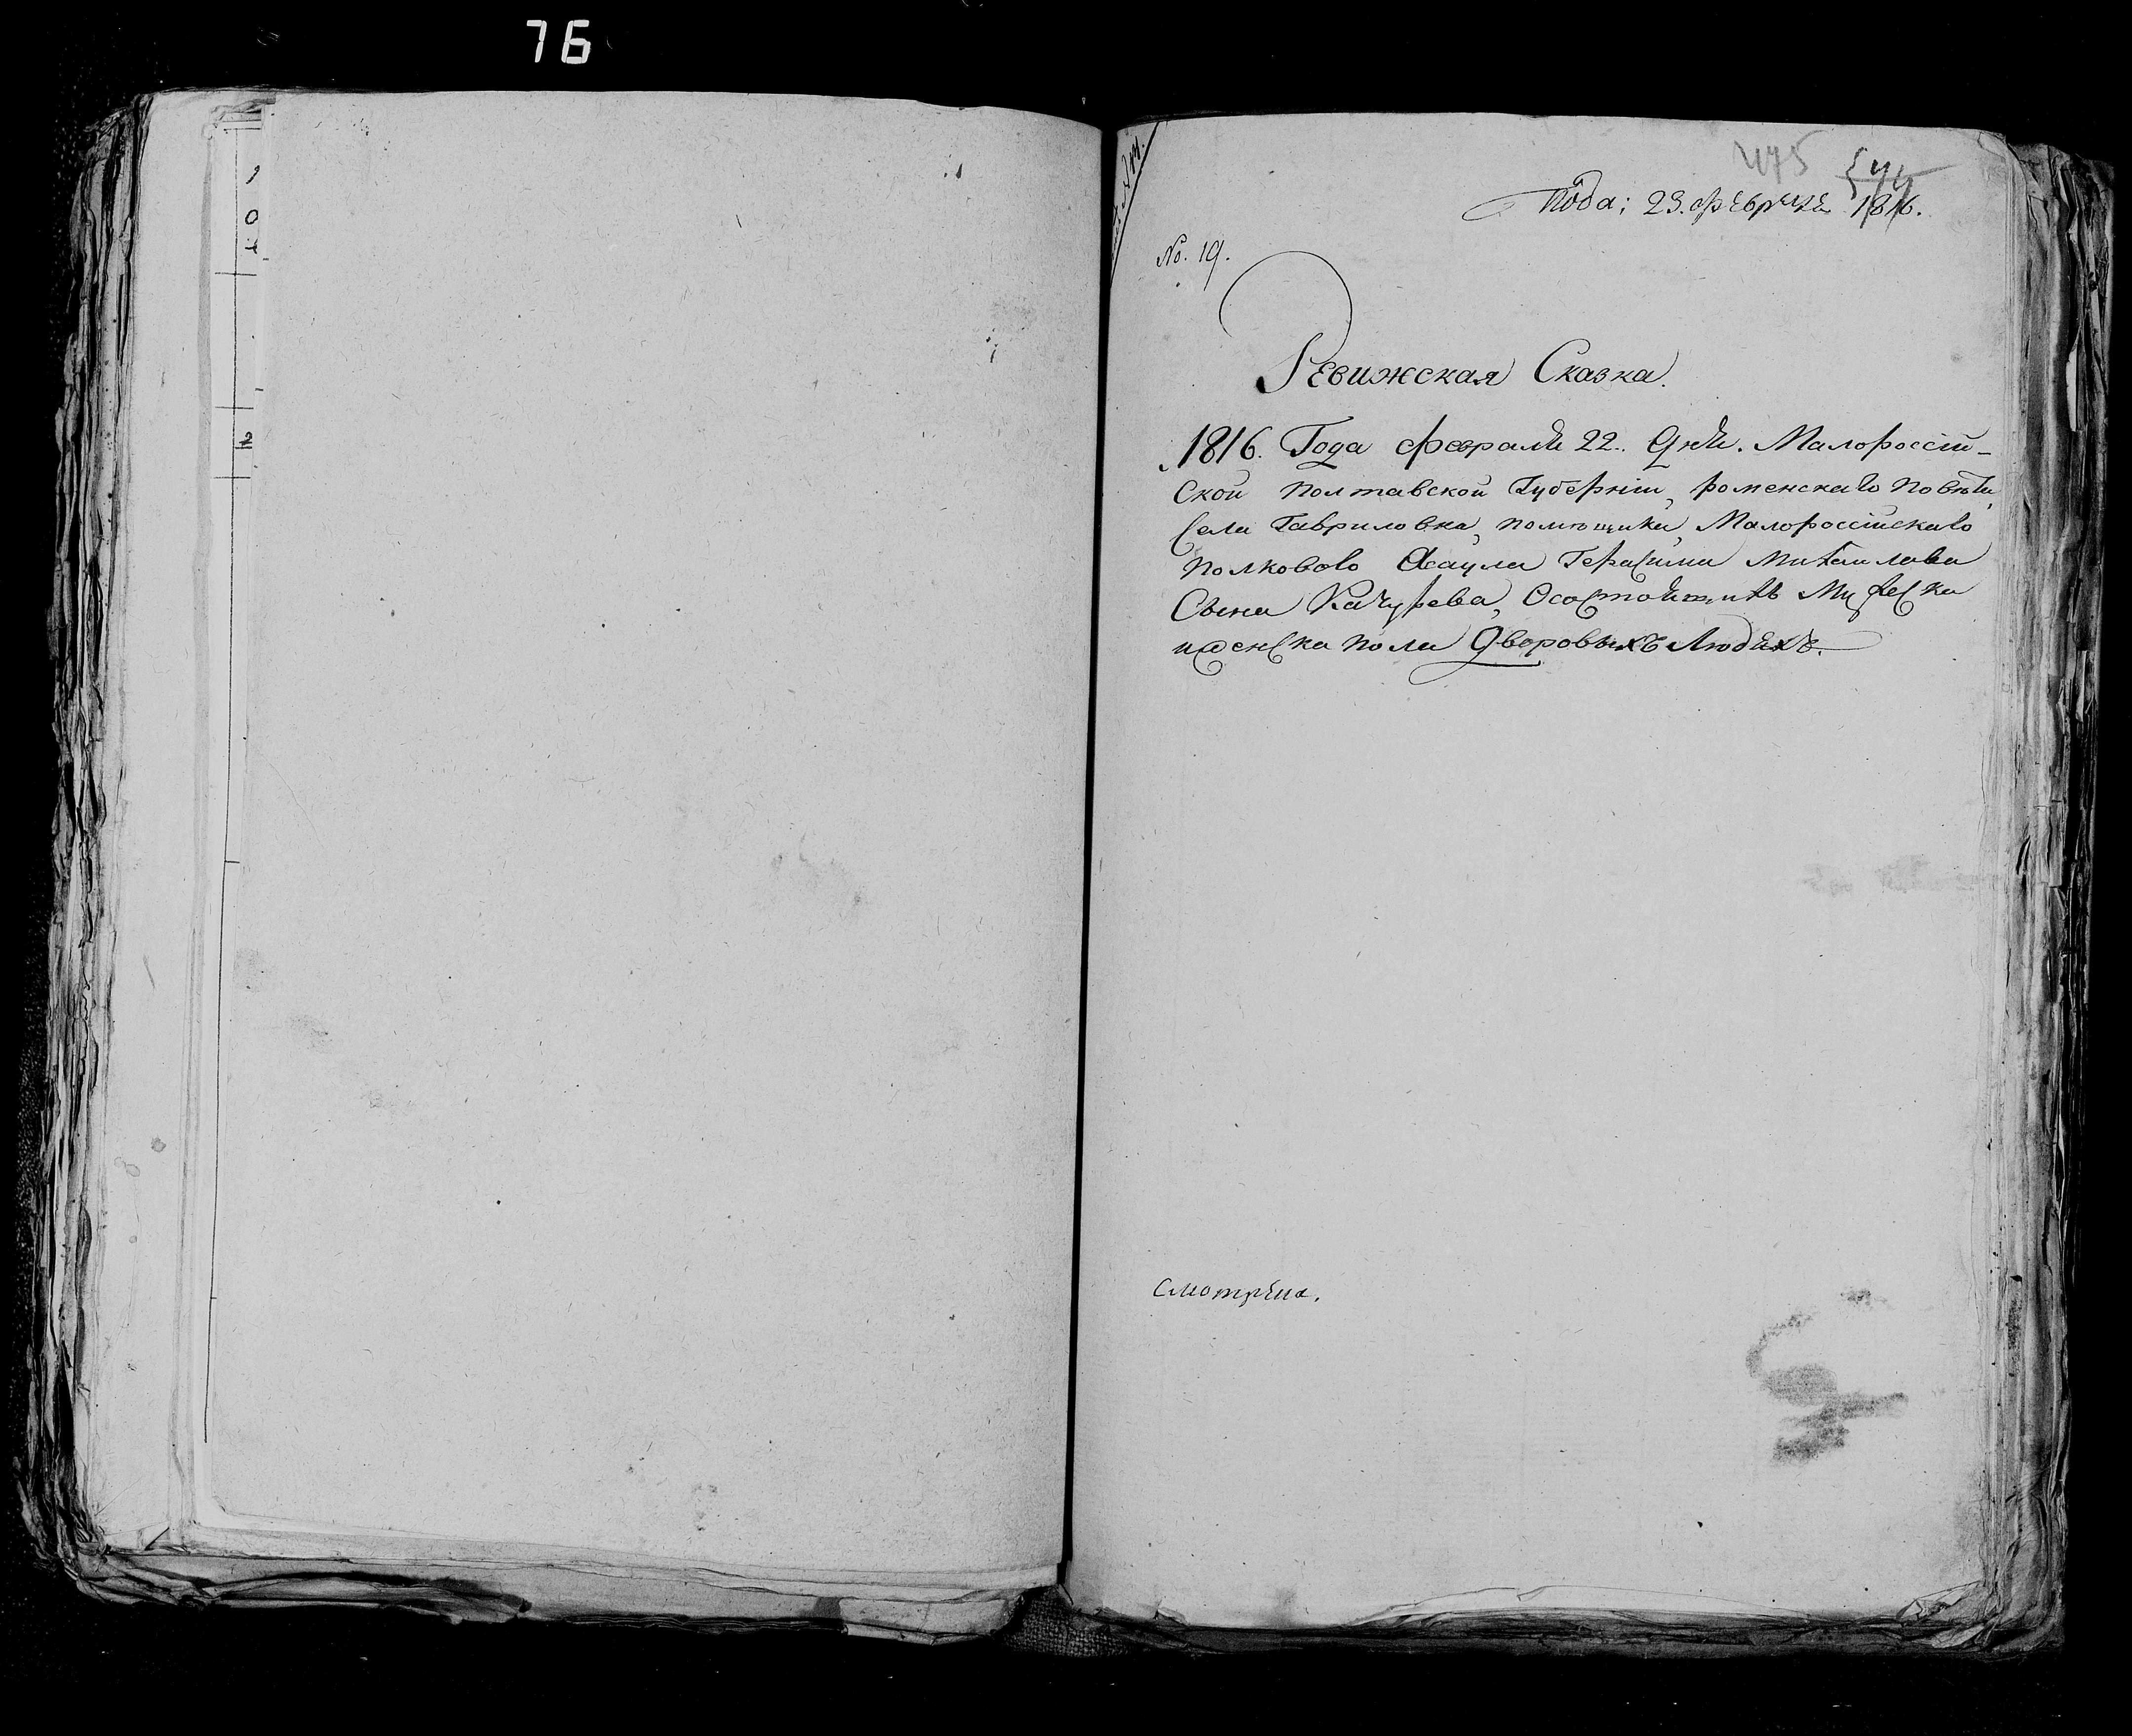 76
1
0
2
475
Пода; 23. февраля 1816.
No. 19.
Ревижская Сказка.
1816. Года февраля 22. Дня. Малороссій-
ской Полтавской Губерніи, роменскаго Повѣта,
Села Гавриловка, помѣщика, Малороссійскаго
Полковаго Асаула Герасима Михайлова
Сына Качурева, Осостоящихъ Мужеска
иженска пола Дворовыхъ Людяхъ.
Смотрена.